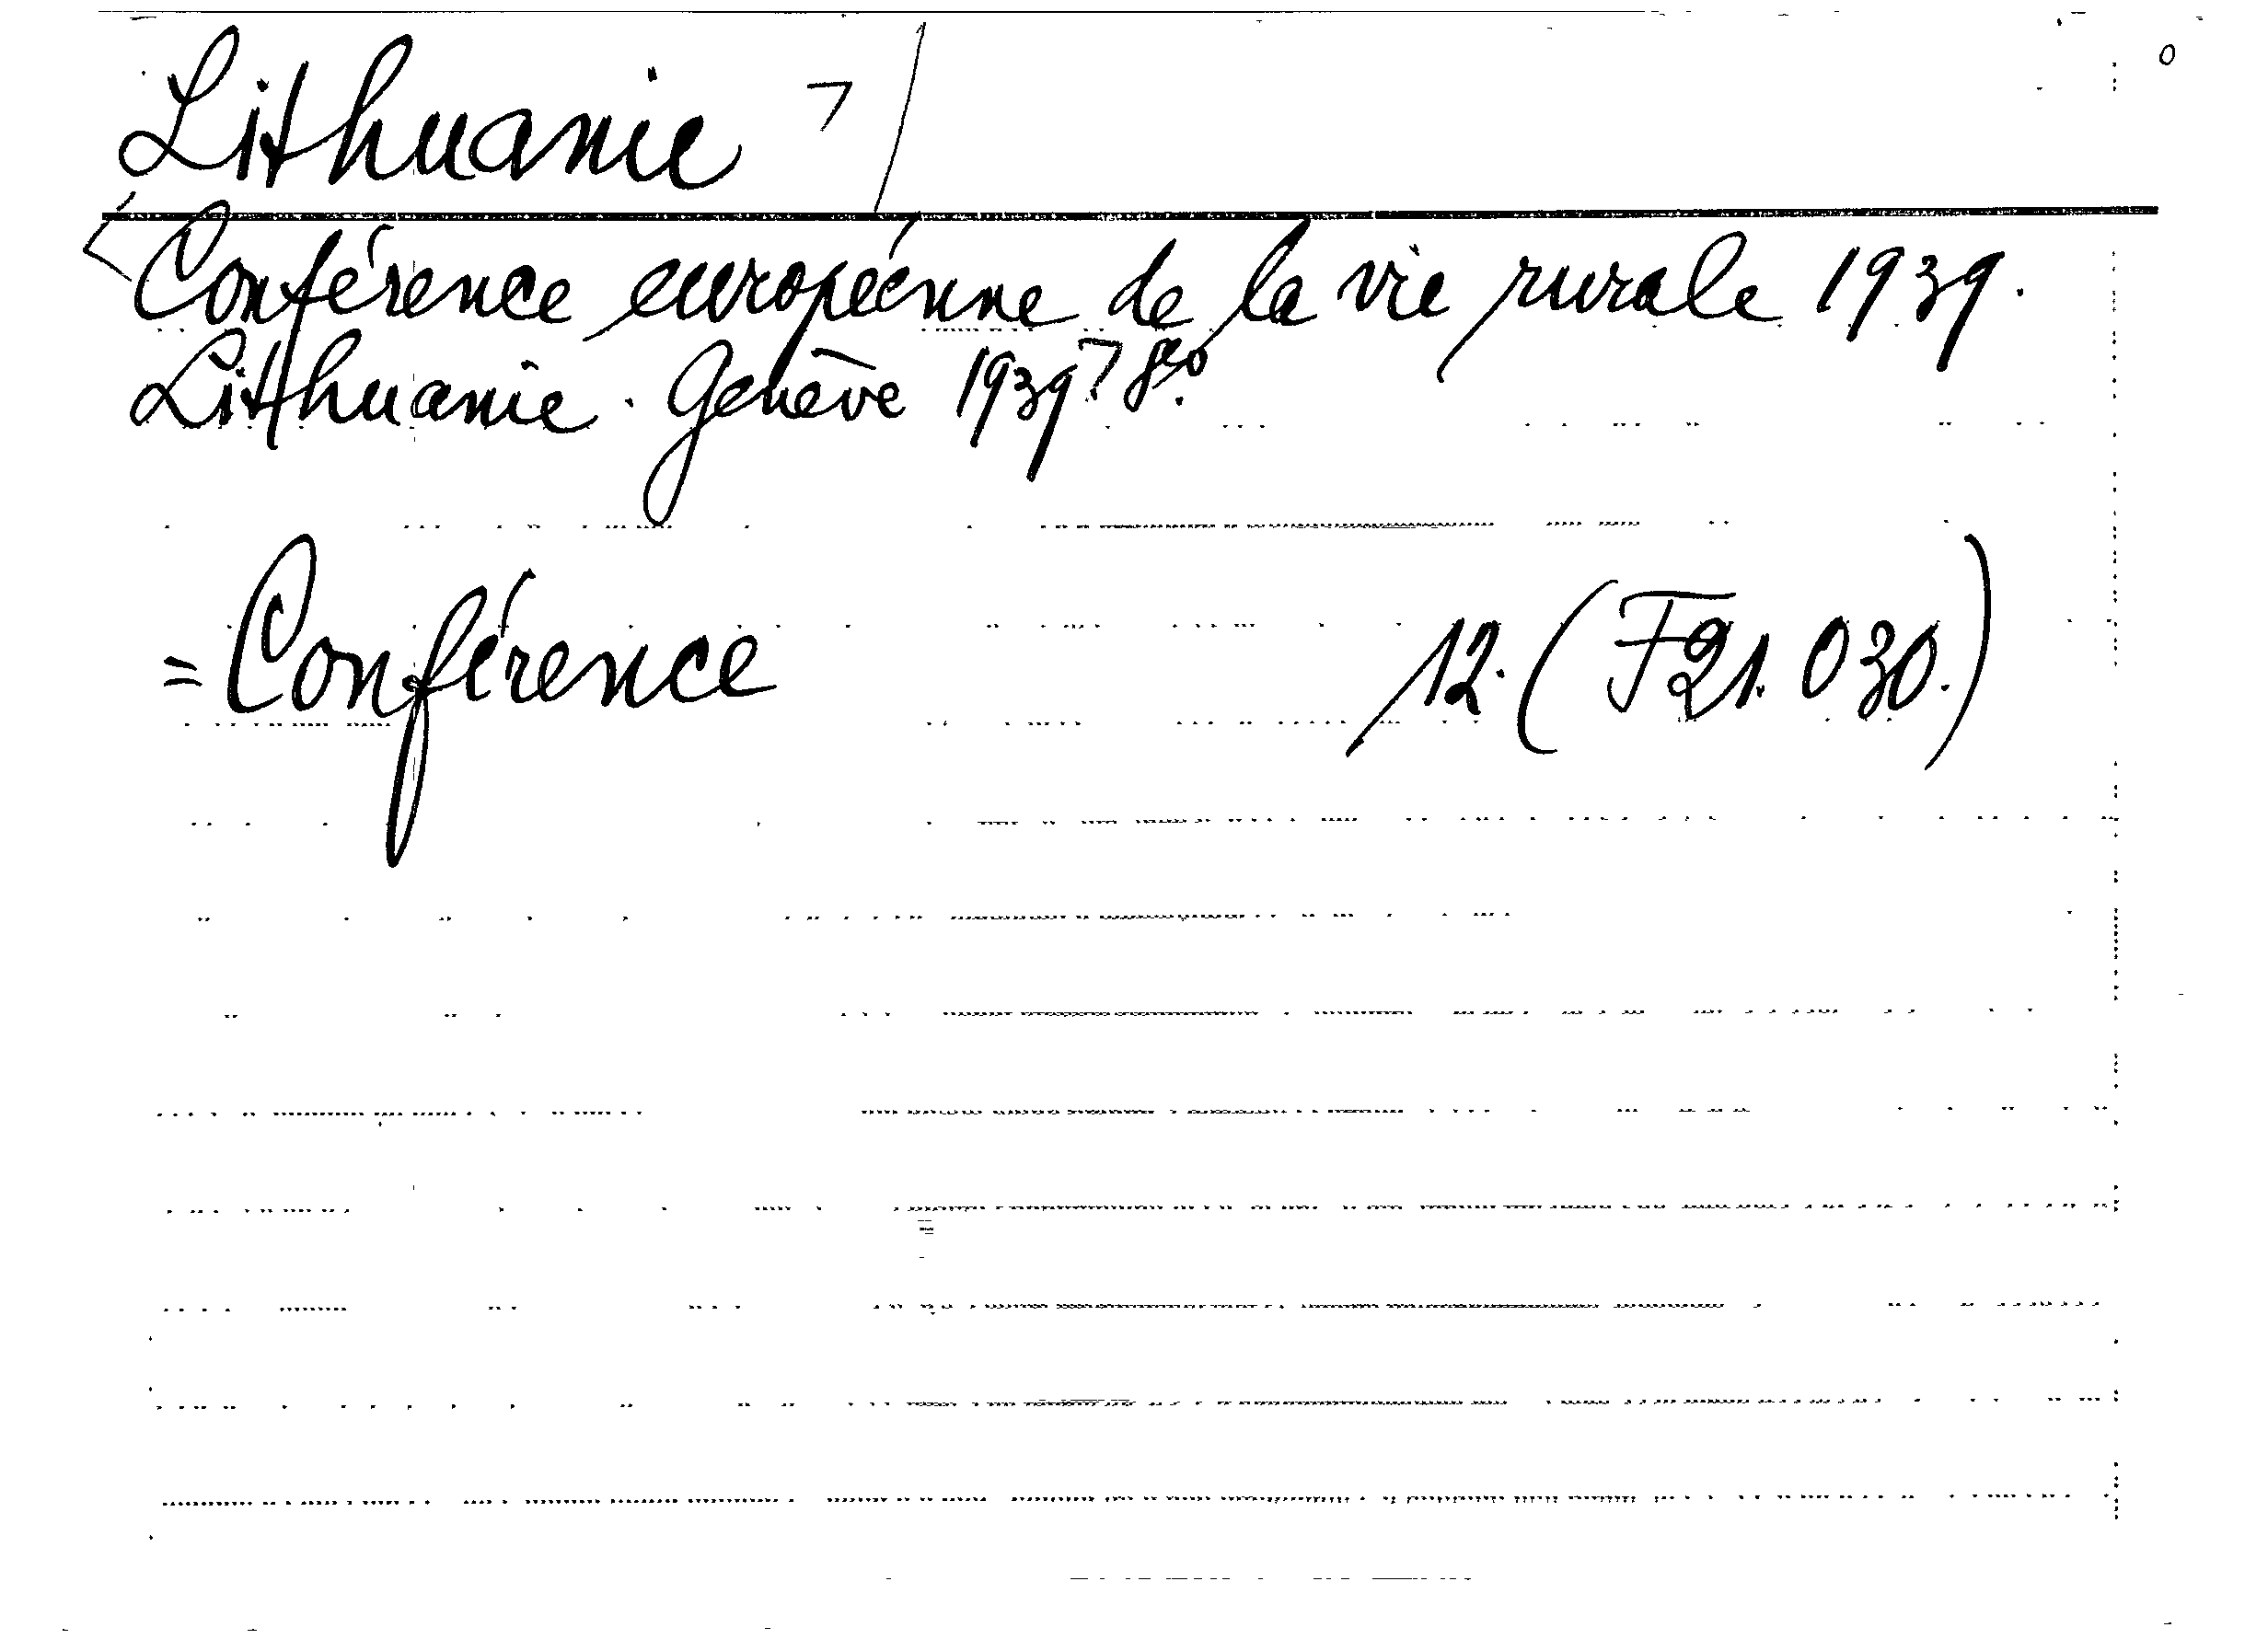 Lithuanie ⌝
<Conférence européenne de la vie rurale 1939.
Lithuanie. Genève 1939⌝ 8vo.
=Conférence 12. (F21. 030.)